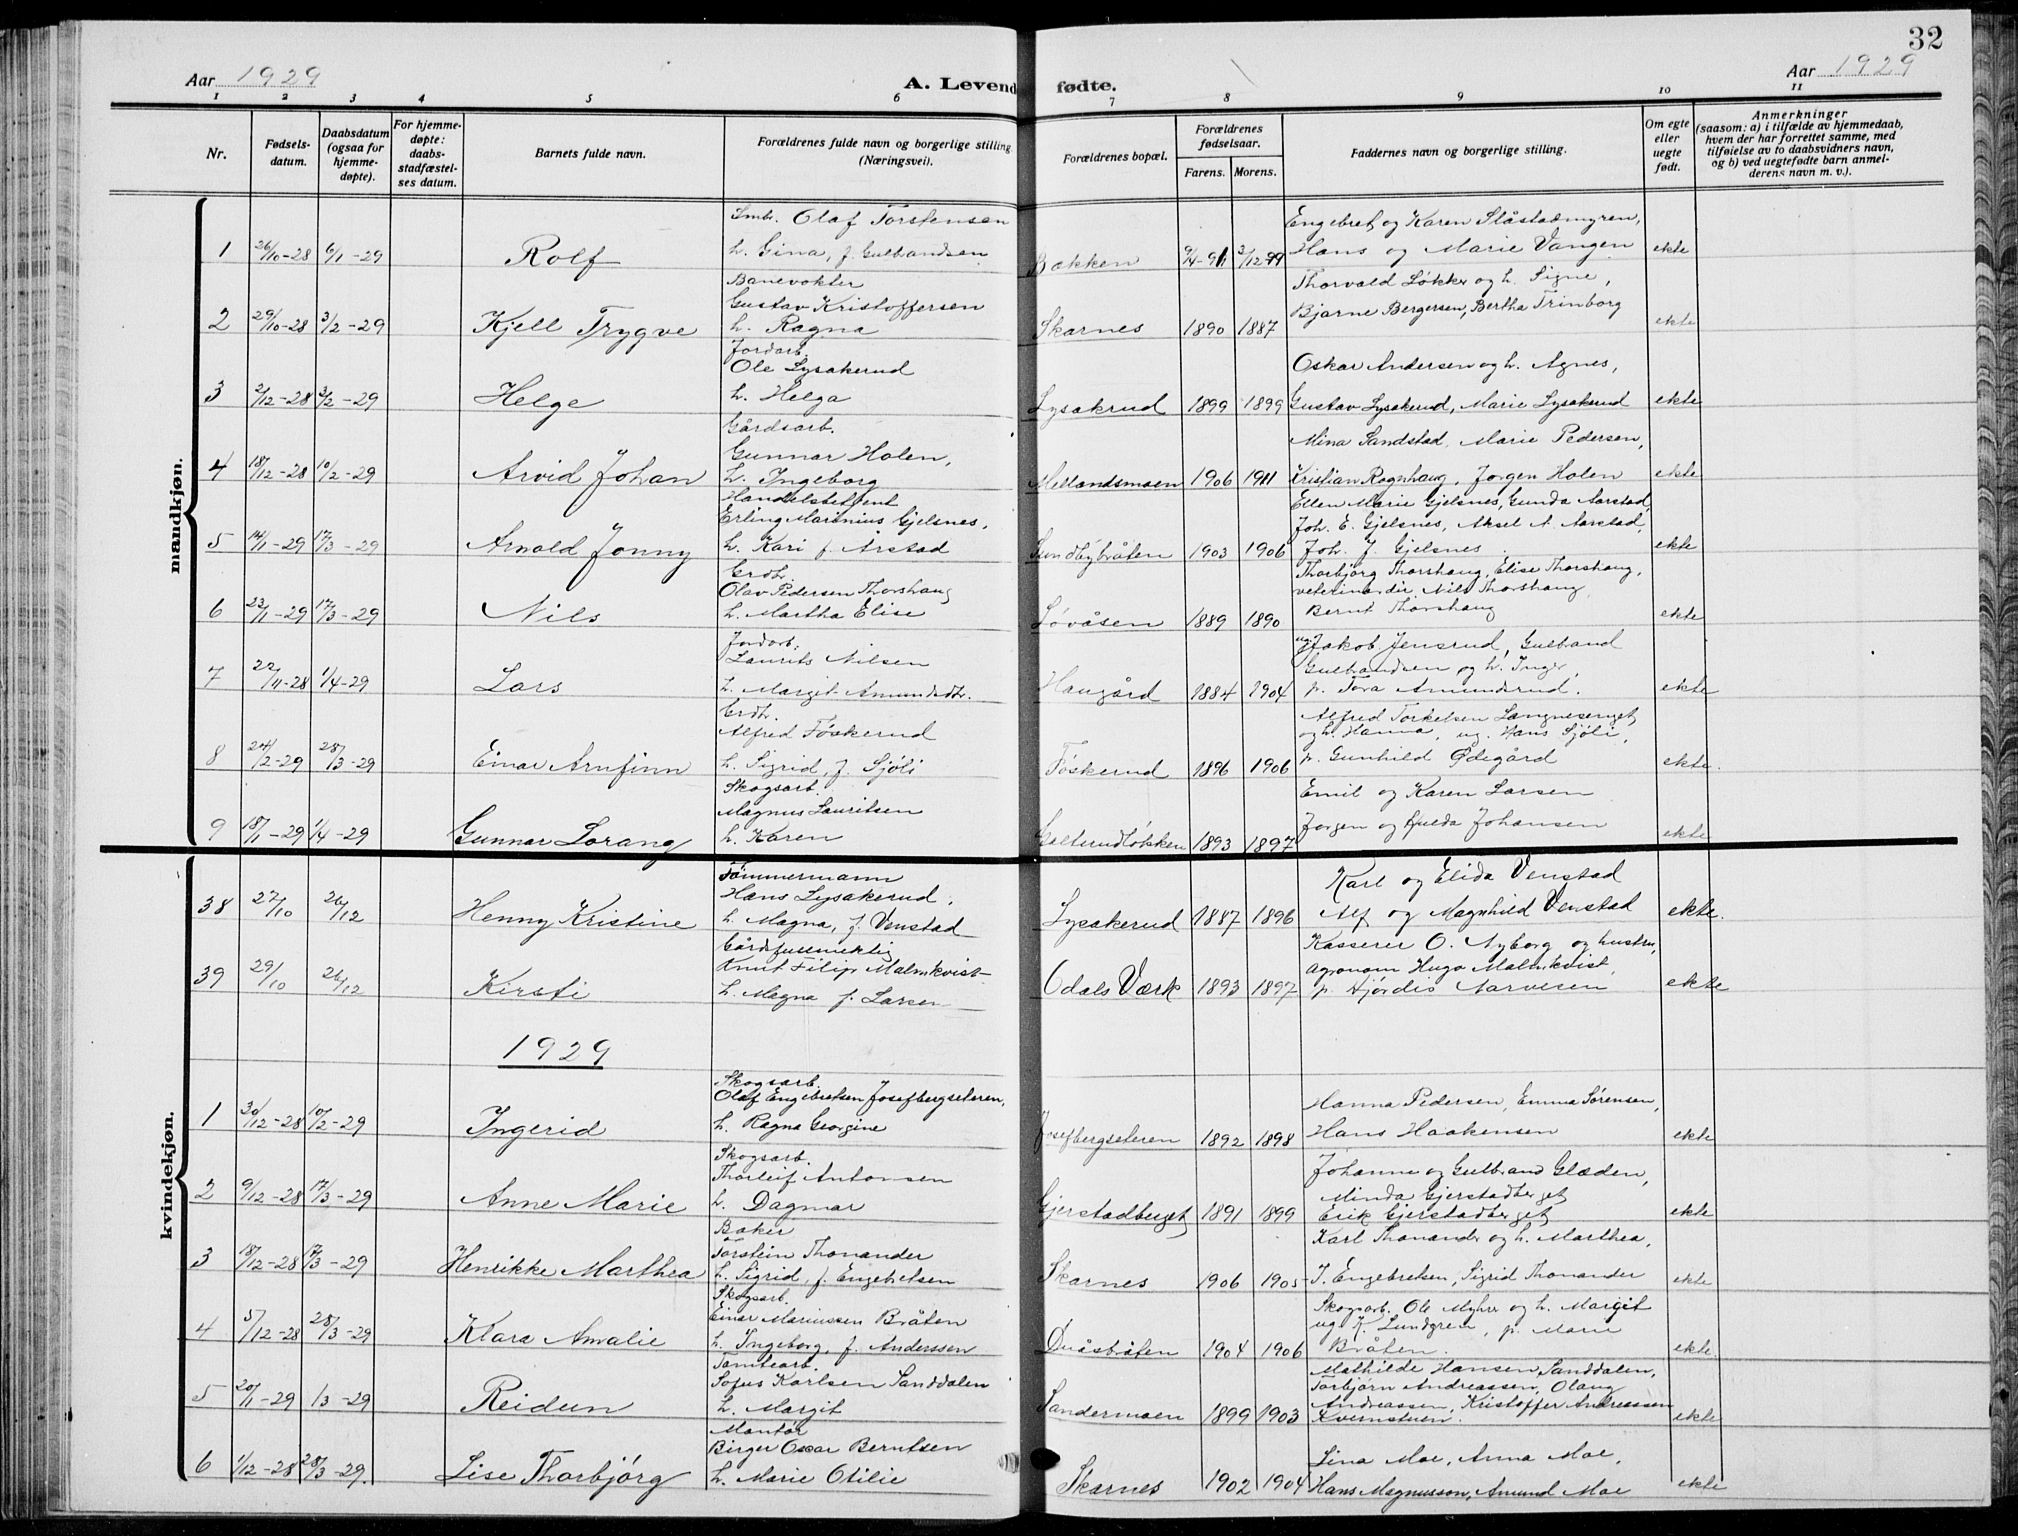 32
Aar 1929
A. Levendefødte.
Aar 1929
1 2 3 4 5 6 7 8 9 10 11
Nr.
Fødsels-
datum.
Daabsdatum
(ogsaa for
hjemme-
døpte).
For hjemme-
døpte:
daabs-
stadfæstel-
ses datum.
Barnets fulde navn.
Forældrenes fulde navn og borgerlige stilling
(Næringsvei).
Forældrenes bopæl.
Forældrenes
fødselsaar.
Farens. Morens.
Faddernes navn og borgerlige stilling.
Om egte
eller
uegte
født.
Anmerkninger
(saasom: a) i tilfælde av hjemmedaab,
hvem der har forrettet samme, med
tilføielse av to daabsvidners navn,
og b) ved uegtefødte barn anmel-
derens navn m. v.).
mandkjøn.
Smbr. Olaf Torstensen Engebret og Karen Slåstadmyren,
1 26/10-28 6/1-29 Rolf h. Gina, f. Gulbrandsen Bakken 9/4-91 3/12-99 Hans og Marie Vangen ekte
Banevokter Thorvald Løkker og h. Signe,
Gustav Kristoffersen Bjarne Bergersen, Bertha Trinborg
2 29/10-28 3/2-29 Kjell Trygve h. Ragna Skarnes 1890 1887 ekte
Jordarb.
Ole Lysakerud Oskar Andersen og h. Agnes,
3 2/12-28 3/2-29 Helge h. Helga Lysakrud 1899 1899 Gustav Lysakerud, Marie Lysakerud ekte
Gårdsarb.
Gunnar Holen, Mina Sandstad, Marie Pedersen,
4 18/12-28 10/2-29 Arvid Johan h. Ingeborg Mellandsmoen 1906 1911 Kristian Rognhaug, Jørgen Holen ekte
Handelsbetjent Ellen Marie Gjelsnes, Gunda Aarstad,
Erling Marinius Gjelsnes, Joh. E. Gjelsnes, Aksel A. Aarstad,
5 14/1-29 17/3-29 Arnold Jonny h. Kari f. Årstad Sundbybråten 1903 1906 Joh. J. Gjelsnes. ekte
Grdbr. Thorbjørg Thorshaug, Elise Thorshaug,
Olav Pedersen Thorshaug veterinærdir. Nils Thorshaug,
6 23/1-29 17/3-29 Nils h. Martha Elise Søvåsen 1889 1890 Bernt Thorshaug ekte
Jordarb. ug. Jakob Jensrud, Gulbrand
Laurits Nilsen Gulbrandsen og h. Inger,
7 22/11-28 1/4-29 Lars h. Margit Amundsdtr. Haugård 1884 1904 p. Tora Amundsrud. ekte
Grdbr. Alfred Torkelsen Langneseriget
Alfred Føskerud og h. Hanna, ug. Hans Sjøli,
8 24/2-29 28/3-29 Einar Arnfinn h. Sigrid, f. Sjöli Föskerud 1896 1906 p. Gunhild Ødegård ekte.
Skogsarb. Emil og Karen Larsen
Magnus Lauritsen
9 18/1-29 1/4-29 Gunnar Lorang h. Karen Galterudløkken 1893 1897 Jørgen og Hulda Johansen ekte
kvindekjøn.
Tömmermann Karl og Elida Venstad
Hans Lysakerud,
38 27/10 26/12 Henny Kristine h. Magna, f. Venstad Lysakerud 1887 1896 Alf og Magnhild Venstad ekte.
Gårdsfullmektig Kasserer O. Nyborg og hustru,
Knut Filip Malmkvist agronom Hugo Malmkvist,
39 29/10 26/12 Kirsti h. Magna f. Larsen Odals Værk 1893 1897 p. Hjørdis Narvesen ekte
1929
Skogsarb.
Olaf Engebretsen Josefbergseteren, Hanna Pedersen, Emma Sørensen,
1 30/12-28 10/2-29 Ingerid h. Ragna Georgine Josefbergseteren 1892 1898 Hans Haakensen ekte
Skogsarb. Johanne og Gulbrand Glæden,
Thorleif Antonsen Minda Gjerstadberget
2 9/12-28 17/3-29 Anne Marie h. Dagmar Gjerstadberget 1891 1899 Erik Gjerstadberget ekte
Baker
Torstein Thonander Karl Thonander og h. Marthea,
3 18/12-28 17/3-29 Henrikke Marthea h. Sigrid, f. Engebretsen Skarnes 1906 1905 J. Engebretsen, Sigrid Thonander ekte
Skogsarb. Skogsarb. Ole Myhre og h. Margit
Einar Mariussen Bråten ug. K. Lundgren, p. Marie
4 5/12-28 28/3-29 Klara Amalie h. Ingeborg, f. Anderssen Duåsbråten 1904 1906 Bråten. ekte
Tomtearb. Mathilde Hansen, Sanddalen,
Sofus Karlsen Sanddalen Torbjørn Andreassen, Olaug
5 20/1-29 1/3-29 Reidun h. Margit Sandermoen 1899 1903 Andreassen, Kristoffer Andreassen
Kvernstuen. ekte
Montør
Birger Oscar Berntsen Lina Moe, Anna Moe,
6 1/12-28 28/3-29. Lise Thorbjørg h. Marie Otilie Skarnes 1902 1904 Hans Magnusson, Amund Moe ekte